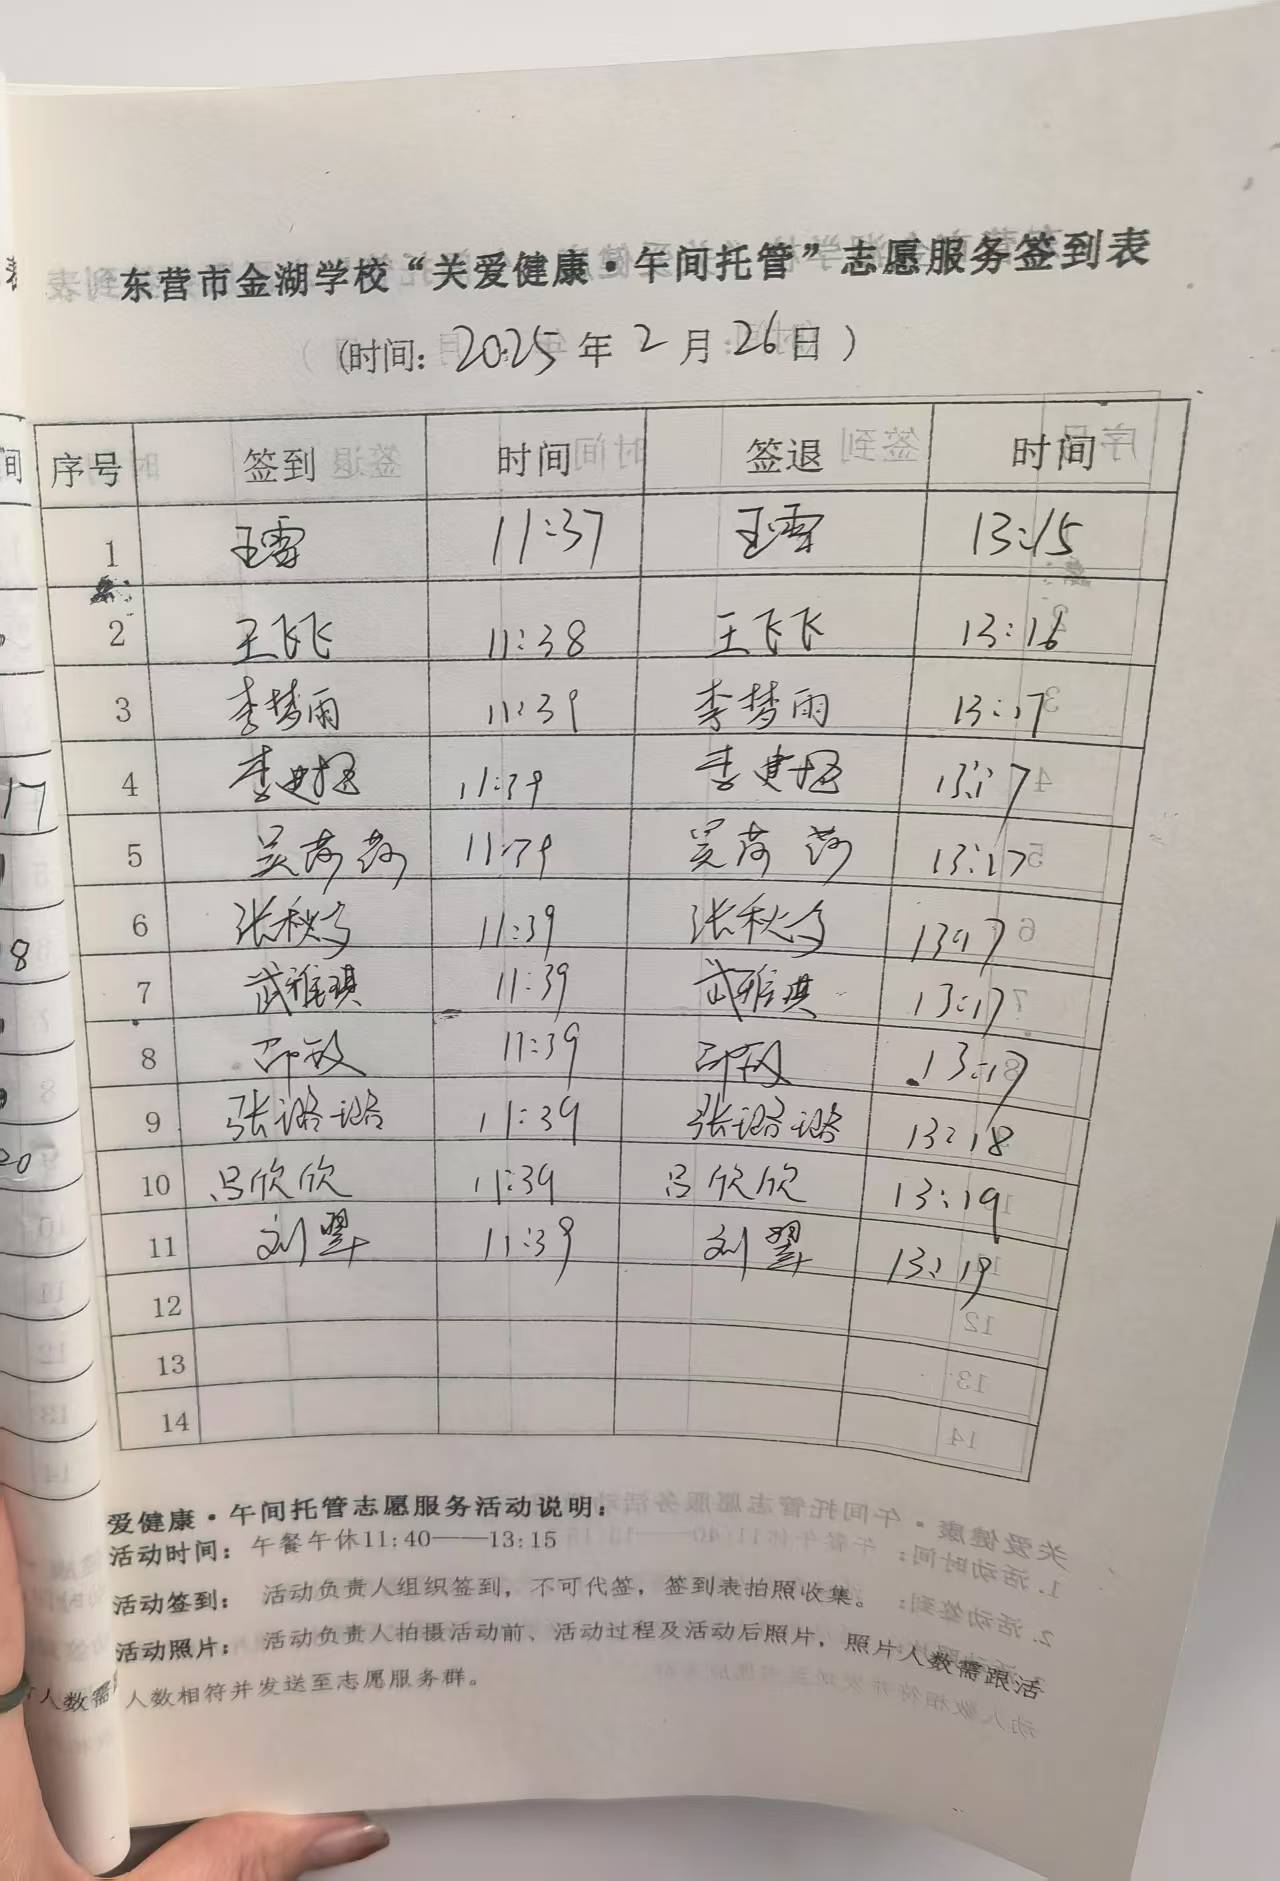 东营市金湖学校“关爱健康·午间托管”志愿服务签到表
(时间: 2025 年 2 月 26 日 )
序号 签到 时间 签退 时间
1 王雪 11:37 王雪 13:15
2 王飞飞 11:38 王飞飞 13:16
3 李梦雨 11:39 李梦雨 13:17
4 11:39 13:17
5 吴莎莎 11:39 吴莎莎 13:17
6 11:39 13:17
7 武雅琪 11:39 武雅琪 13:17
8 邵敏 11:39 邵敏 13:17
9 张璐璐 11:39 张璐璐 13:18
10 吕欣欣 11:39 吕欣欣 13:19
11 刘翠 11:39 刘翠 13:19
12
13
14
爱健康·午间托管志愿服务活动说明:
活动时间: 午餐午休11:40——13:15
活动签到: 活动负责人组织签到, 不可代签, 签到表拍照收集。
活动照片: 活动负责人拍摄活动前、活动过程及活动后照片, 照片人数需跟活
人数相符并发送至志愿服务群。